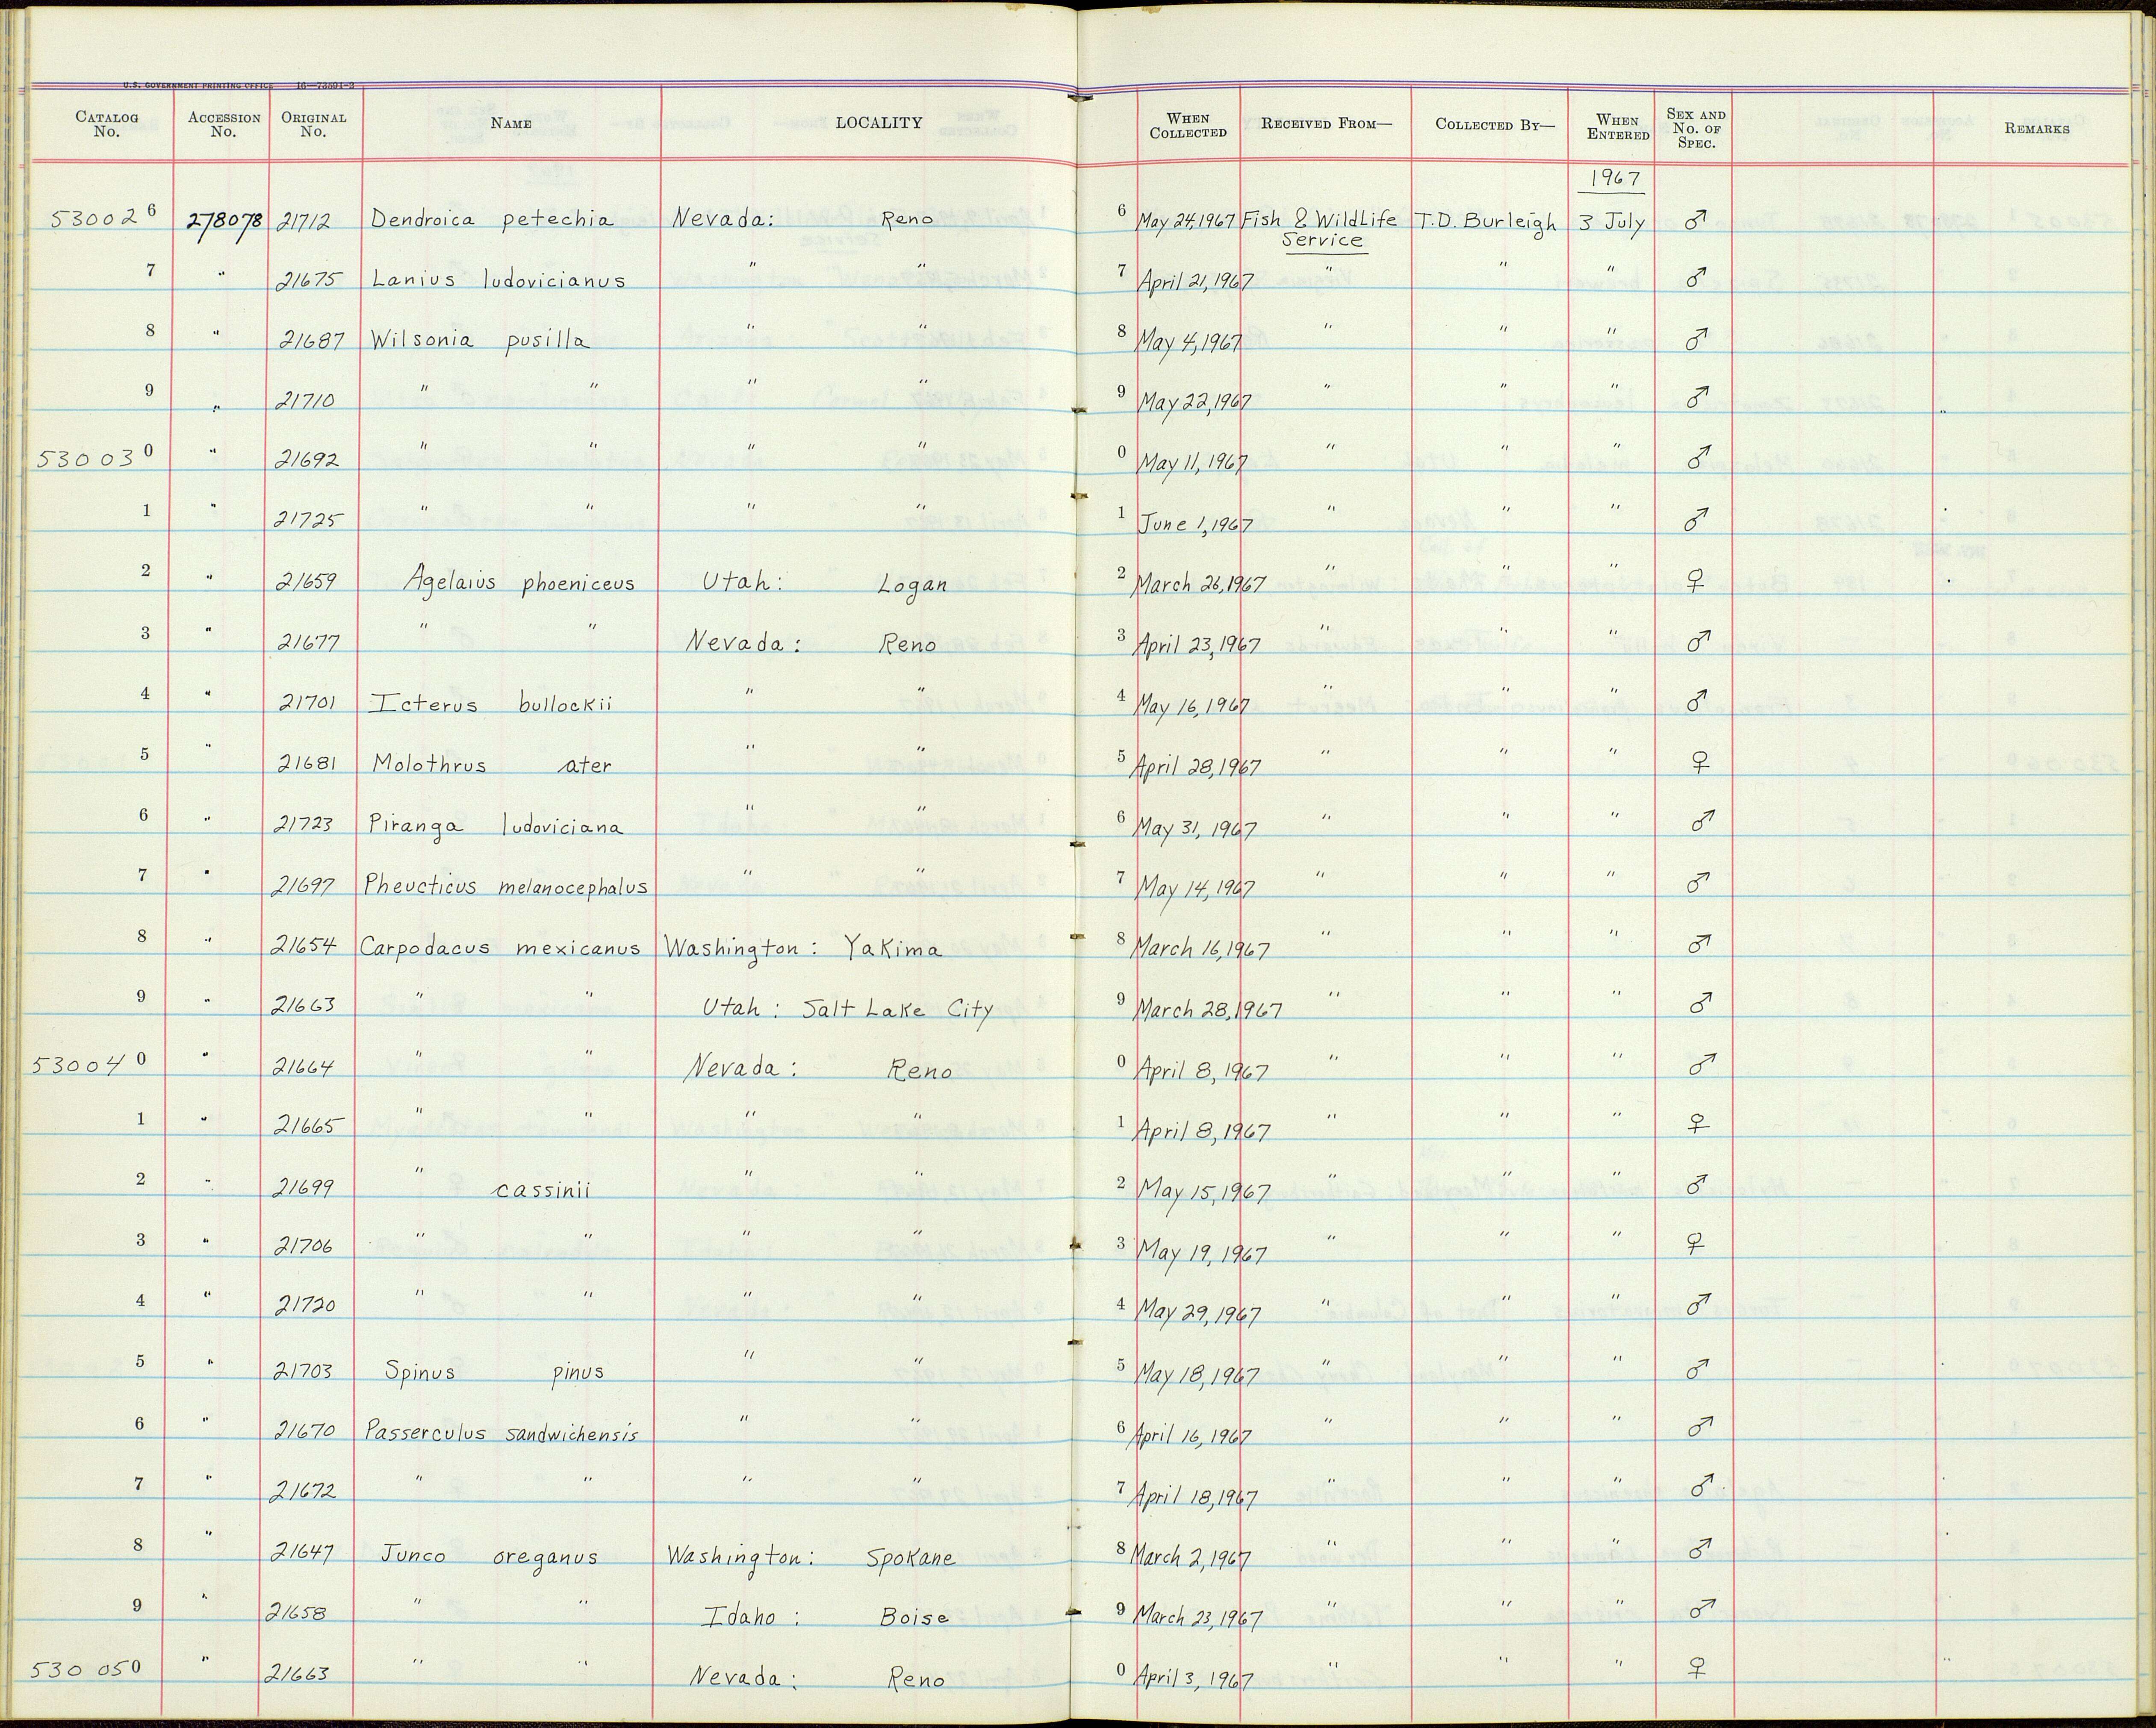 U.S. GOVERNMENT PRINTING OFFICE 16—73501-2
CATALOG No. ACCESSION No. ORIGINAL No. NAME LOCALITY WHEN COLLECTED RECEIVED FROM— COLLECTED BY— WHEN ENTERED SEX AND No. OF SPEC. REMARKS
1967
530026 278078 21712 Dendroica petechia Nevada: Reno 6 May 24, 1967 Fish & Wildlife Service T.D. Burleigh 3 July ♂
7 " 21675 Lanius ludovicianus " " 7 April 21, 1967 " " " ♂
8 " 21687 Wilsonia pusilla " " 8 May 4, 1967 " " " ♂
9 " 21710 " " " " 9 May 22, 1967 " " " ♂
530030 " 21692 " " " " 0 May 11, 1967 " " " ♂
1 " 21725 " " " " 1 June 1, 1967 " " " ♂
2 " 21659 Agelaius phoeniceus Utah: Logan 2 March 26, 1967 " " " ♀
3 " 21677 " " Nevada: Reno 3 April 23, 1967 " " " ♂
4 " 21701 Icterus bullockii " " 4 May 16, 1967 " " " ♂
5 " 21681 Molothrus ater " " 5 April 28, 1967 " " " ♀
6 " 21723 Piranga ludoviciana " " 6 May 31, 1967 " " " ♂
7 " 21697 Pheucticus melanocephalus " " 7 May 14, 1967 " " " ♂
8 " 21654 Carpodacus mexicanus Washington: Yakima 8 March 16, 1967 " " " ♂
9 " 21663 " " Utah: Salt Lake City 9 March 28, 1967 " " " ♂
530040 " 21664 " " Nevada: Reno 0 April 8, 1967 " " " ♂
1 " 21665 " " " " 1 April 8, 1967 " " " ♀
2 " 21699 " cassinii " " 2 May 15, 1967 " " " ♂
3 " 21706 " " " " 3 May 19, 1967 " " " ♀
4 " 21720 " " " " 4 May 29, 1967 " " " ♂
5 " 21703 Spinus pinus " " 5 May 18, 1967 " " " ♂
6 " 21670 Passerculus sandwichensis " " 6 April 16, 1967 " " " ♂
7 " 21672 " " " " 7 April 18, 1967 " " " ♂
8 " 21647 Junco oreganus Washington: Spokane 8 March 2, 1967 " " " ♂
9 " 21658 " " Idaho: Boise 9 March 23, 1967 " " " ♂
530050 " 21663 " " Nevada: Reno 0 April 3, 1967 " " " ♀